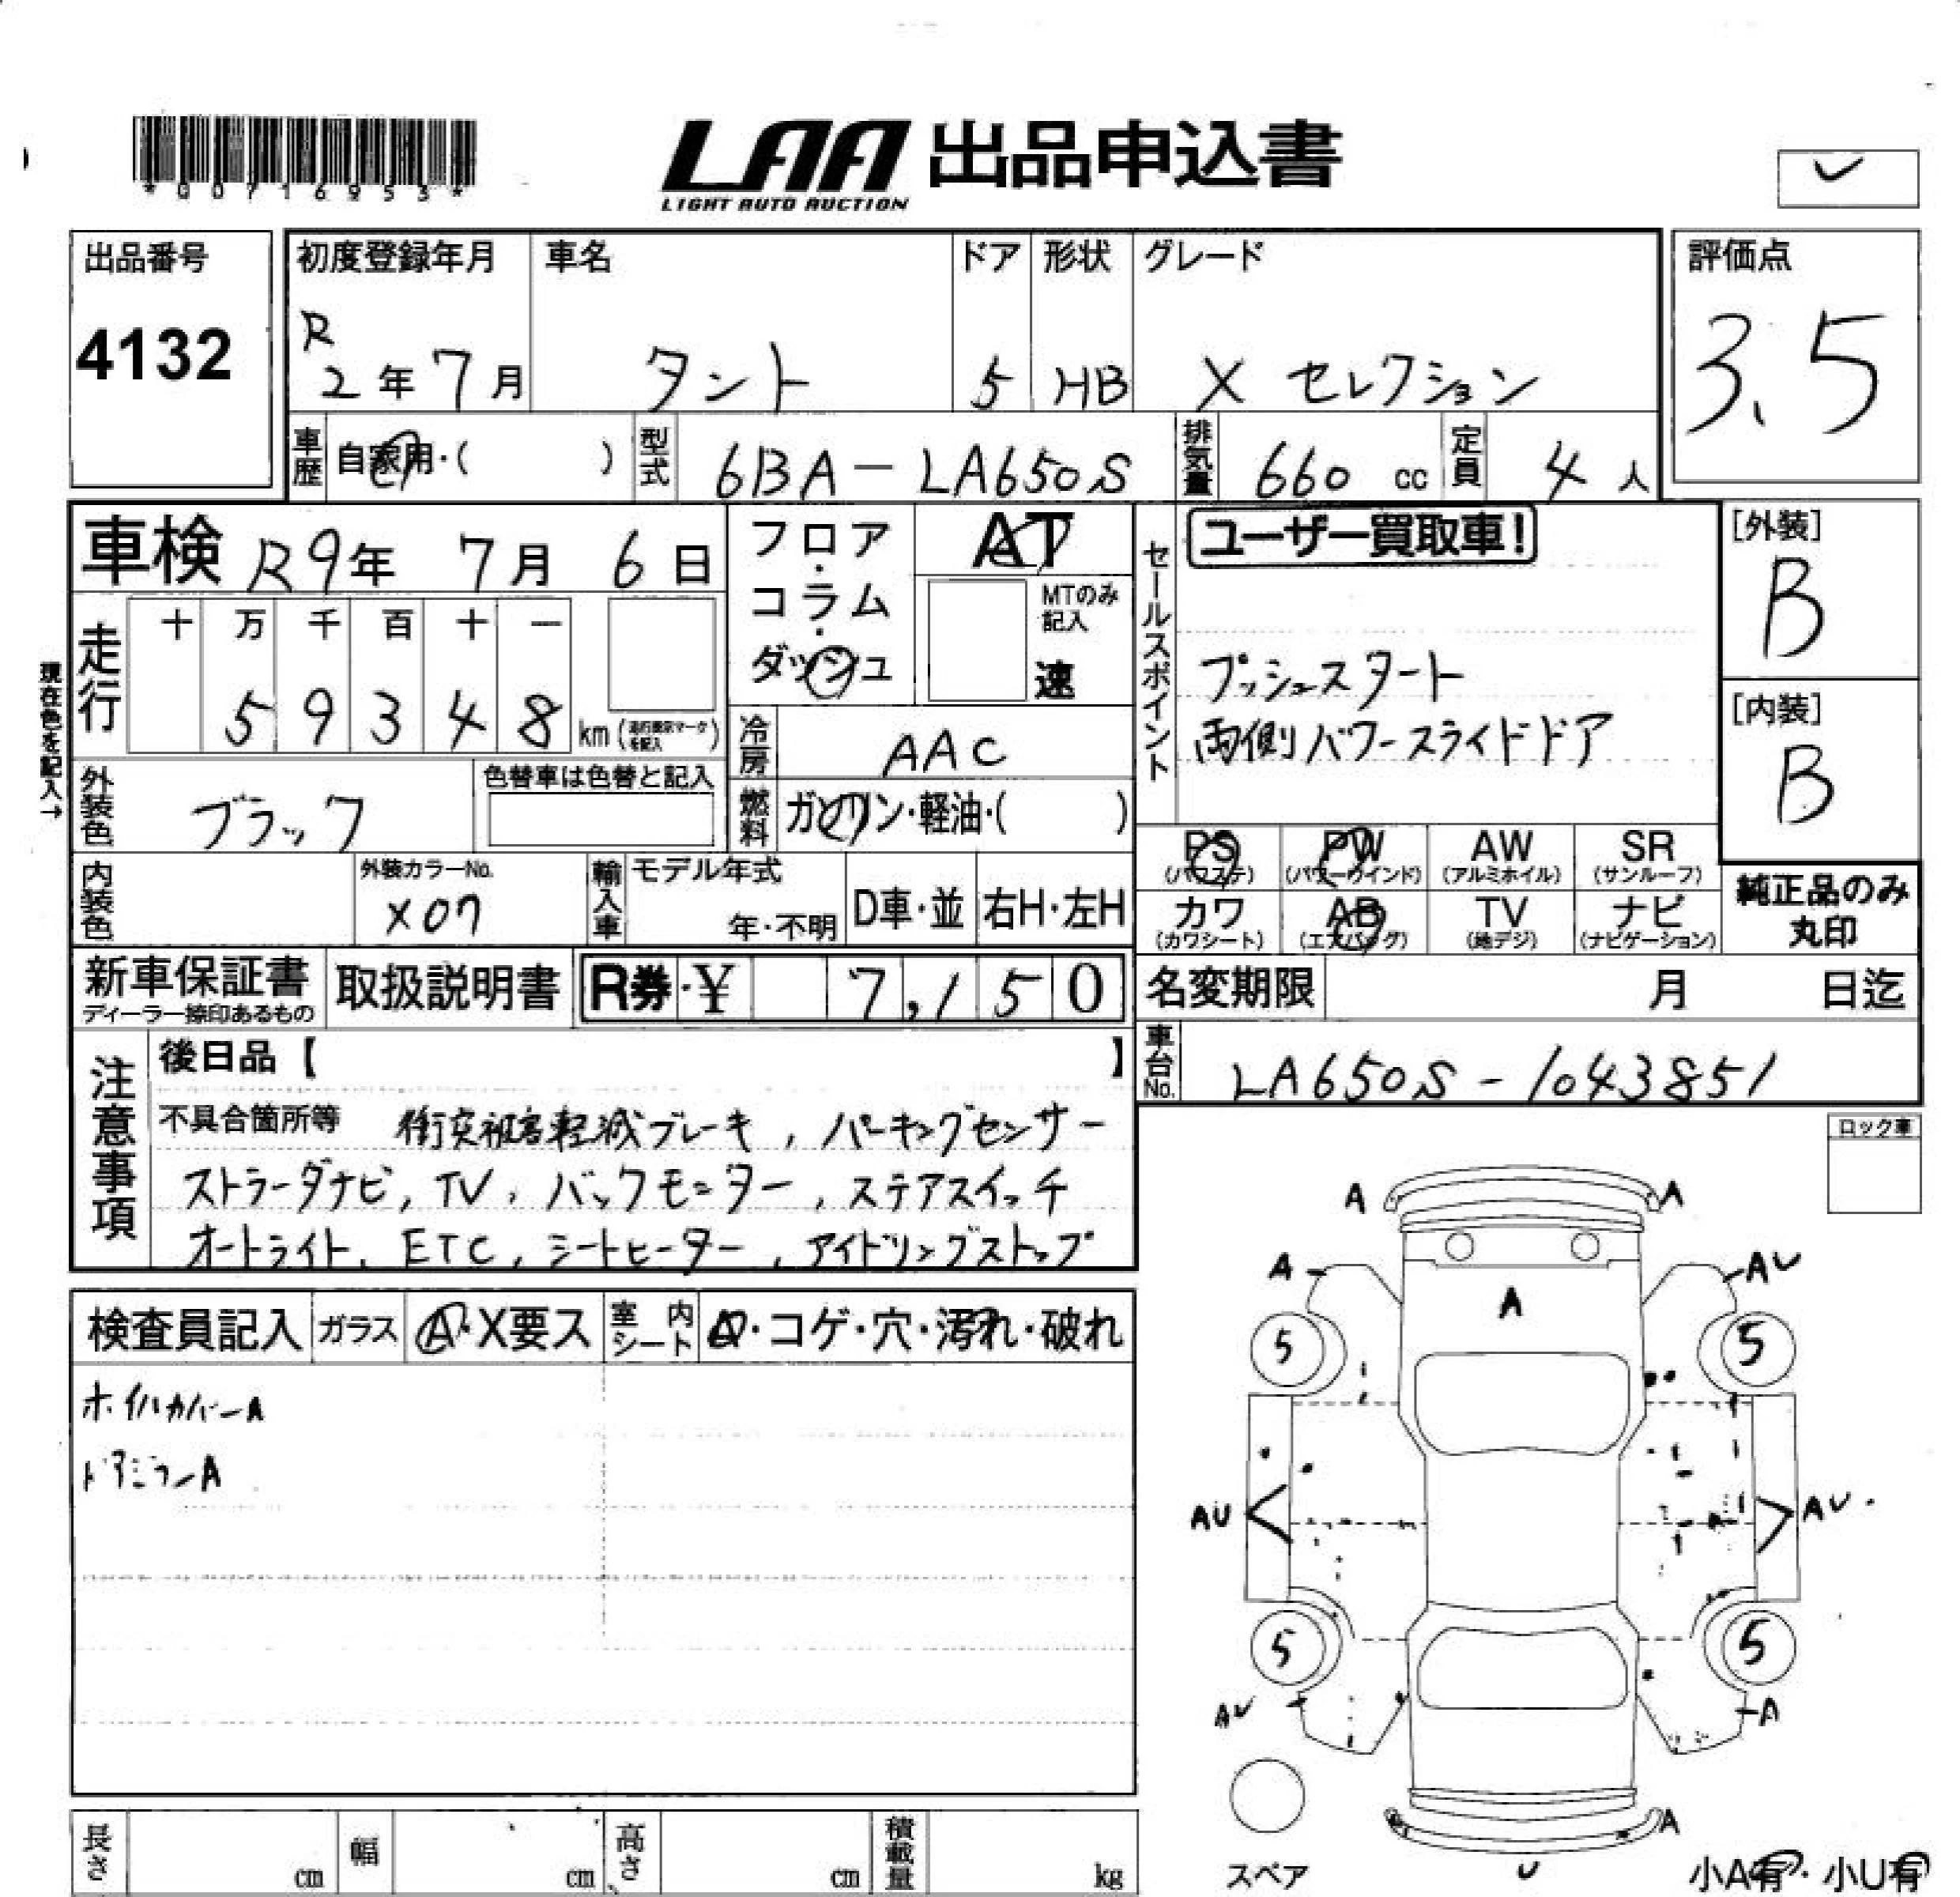 *G0716953*
LAA 出品申込書
LIGHT AUTO AUCTION
出品番号
4132
初度登録年月
R
2年7月
車名
タント
ドア
5
形状
HB
グレード
X セレクション
評価点
3.5
車歴
自家用・( )
型式
6BA-LA650S
排気量
660 cc
定員
4人
車検 R9年 7月 6日
フロア・コラム・ダッシュ
AT
MTのみ記入
速
セールスポイント
ユーザー買取車!
プッシュスタート
両側パワースライドドア
[外装]
B
[内装]
B
現在色を記入→
走行
十 万 千 百 十 一
5 9 3 4 8 km
冷房
AAC
外装色
ブラック
色替車は色替と記入
燃料
ガソリン・軽油・( )
PS AW SR
PW
(パワステ) (パワーウインド) (アルミホイル) (サンルーフ)
カワ AB TV ナビ
(カワシート) (エアバッグ) (地デジ) (ナビゲーション)
純正品のみ
丸印
内装色
外装カラーNo.
X07
輸入車
モデル年式
年・不明
D車・並
右H・左H
新車保証書
ディーラー捺印あるもの
取扱説明書
R券・¥ 7,150
名変期限 月 日迄
車台No.
LA650S-1043851
注意事項
後日品【 】
不具合箇所等 衝突被害軽減ブレーキ, パーキングセンサー
ストラーダナビ, TV, バックモニター, ステアスイッチ
オートライト, ETC, シートヒーター, アイドリングストップ
ロック車
検査員記入
ガラス
A・X要ス
室内シート
・コゲ・穴・汚れ・破れ
ホイルカバーA
ドアミラーA
A A
A AU
A
5 5
AU AU
5 5
AU A
A
U
スペア
小A有・小U有
長さ cm
幅 cm
高さ cm
積載量 kg